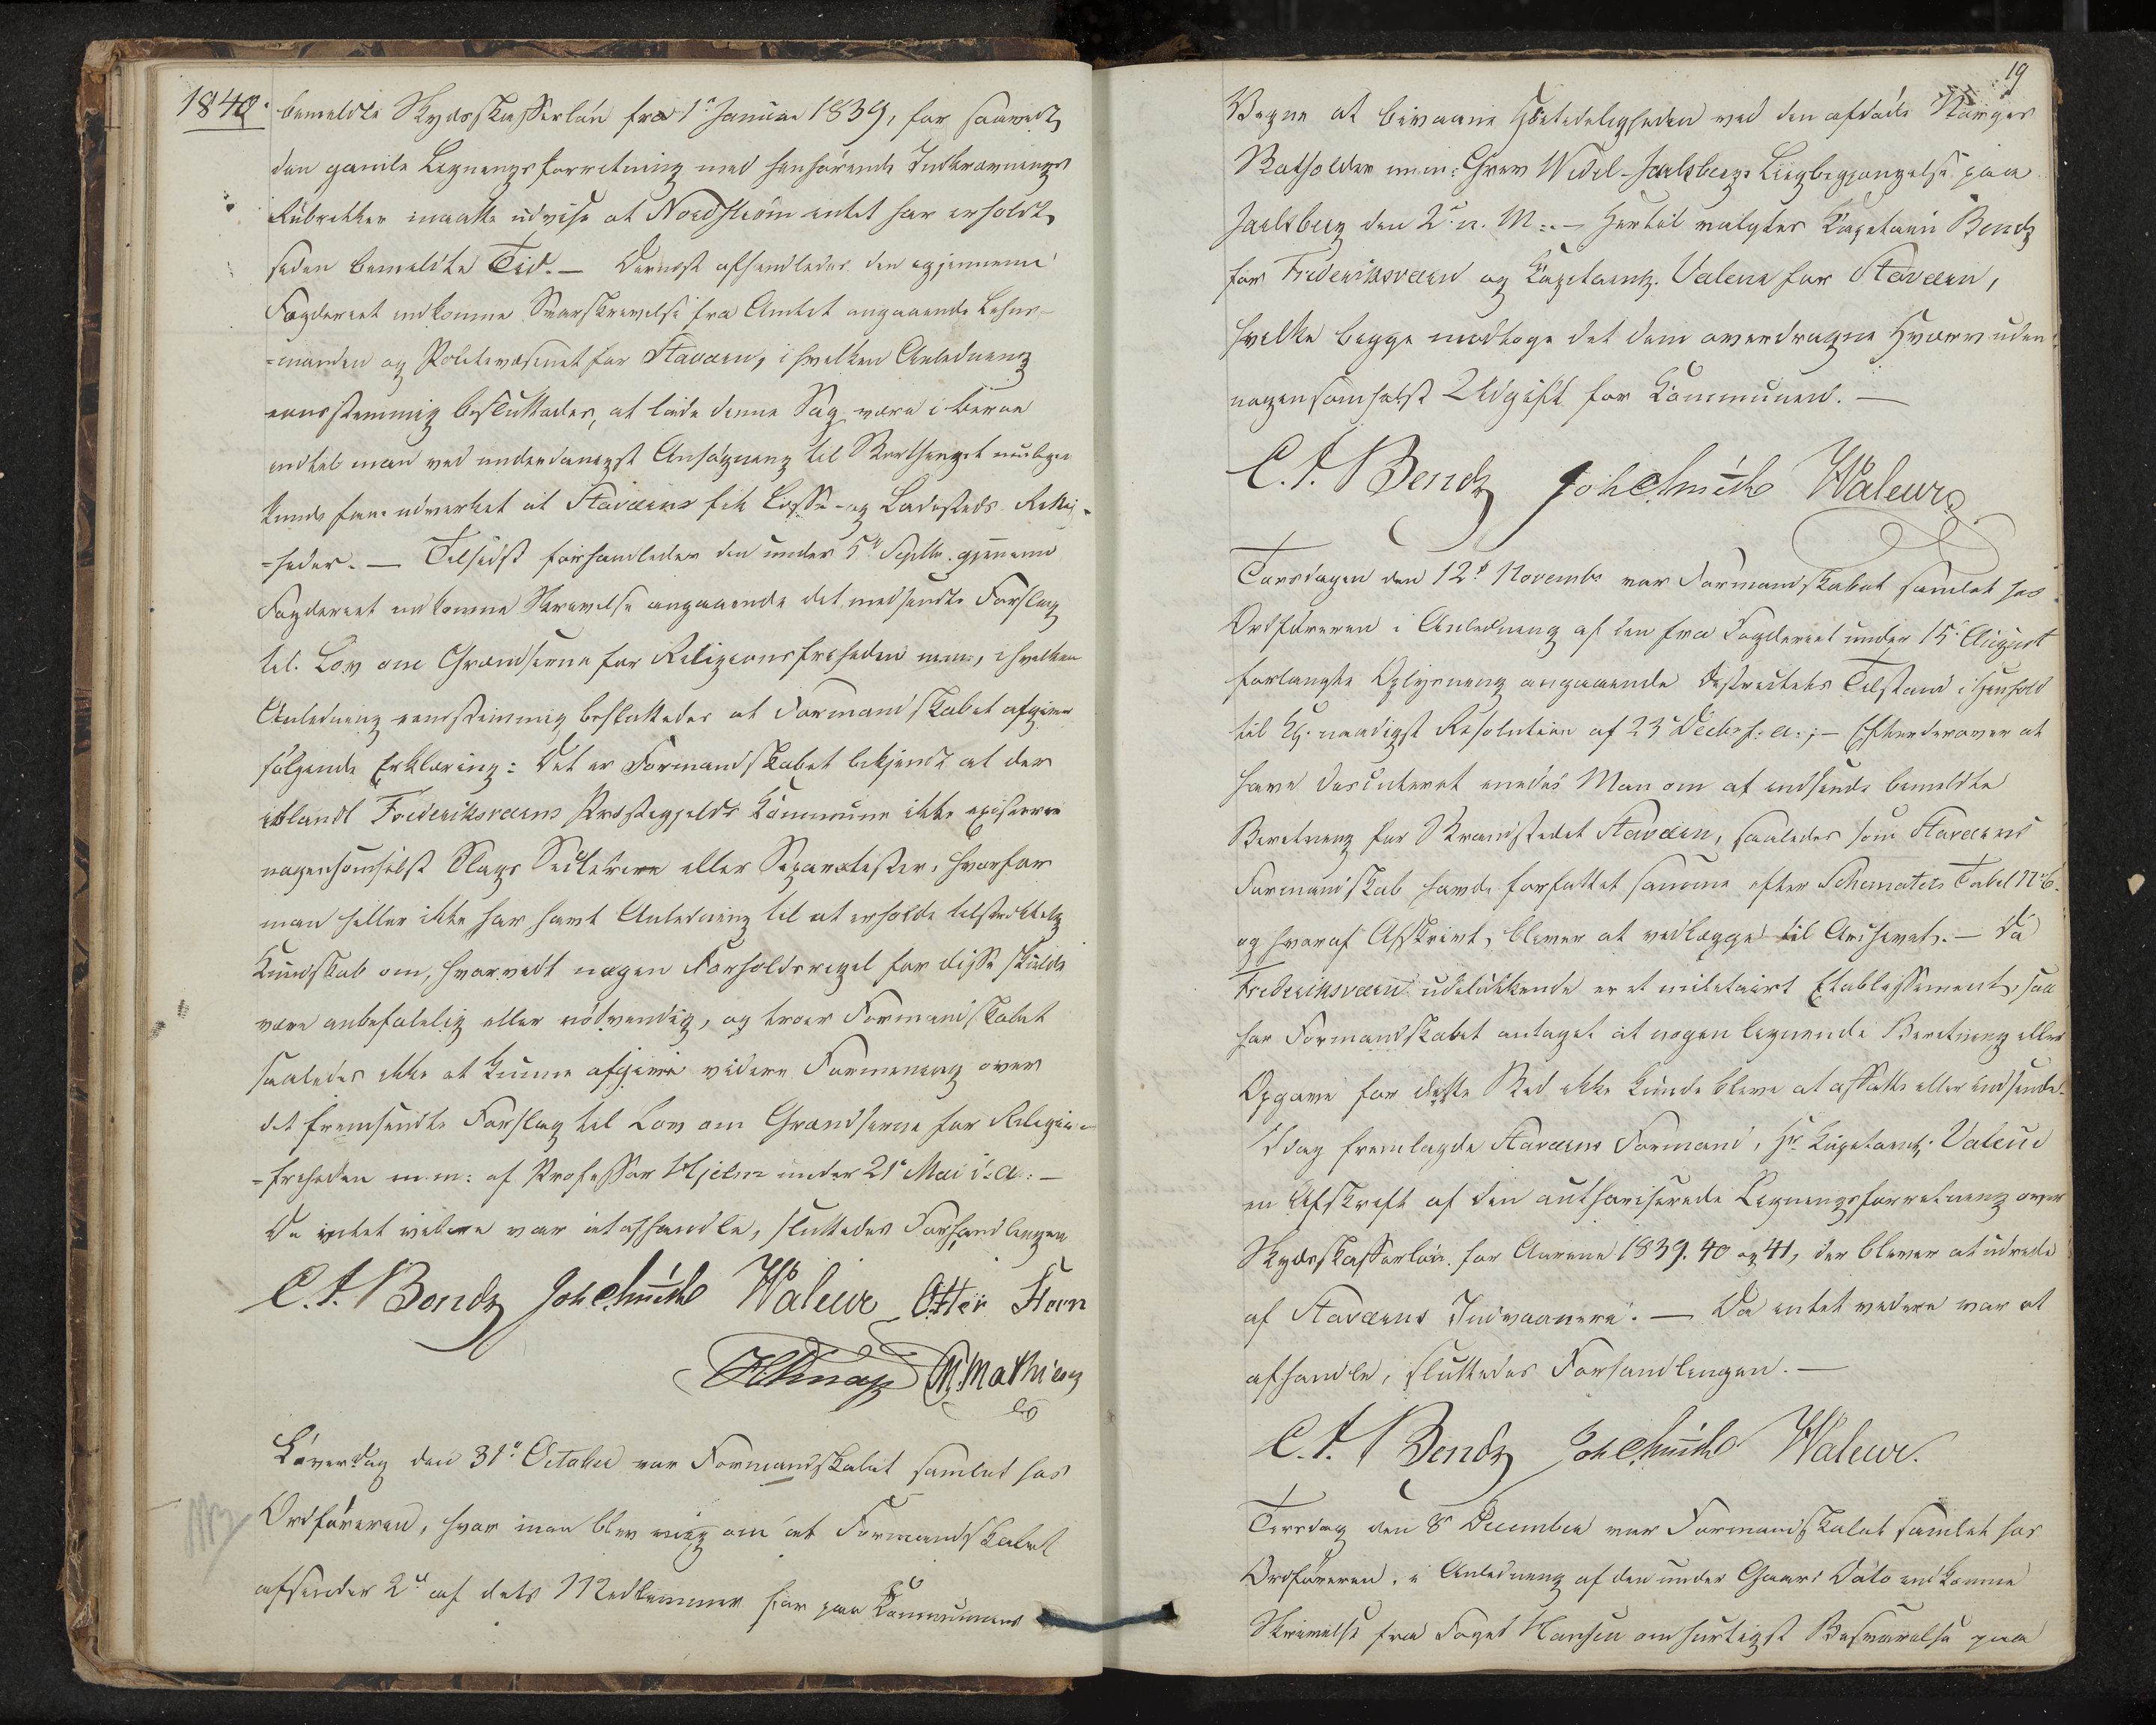 1840.
bemeldte Skydsskafferløn fra 1ste Januar 1839, for saavidt
den gamle Ligningsforretning med henhørende Inkrævnings
Rubrikker maatte udvise at Nordstrøm intet har erholdt
siden bemeldte Tid. — Dernæst afhandledes den igjennem
Fogderiet indkomne Svarskrivelse fra Amtet angaaende Lehns-
=manden og Politievæsenet for Staværn, i hvilken Anledning
eensstemmig besluttedes, at lade denne Sag være i Beroe
indtil man ved underdanigst Ansøgning til Storthinget muligen
kunde faae udvirket at Staværns fik Losse- og Ladesteds Rettig-
=heder. — Tilsidst forhandledes den under 5te Septbr. gjennem
Fogderiet indkomne Skrivelse angaaende det medsendte Forslag
til Lov om Grændserne for Religionsfriheden m.m., i hvilken
Anledning eensstemmig besluttedes at Formandskabet afgiver
følgende Erklæring: Det er Formandskabet bekjendt at der
iblandt Frideriksværns Præstegjelds Kommune ikke existerer
nogensomhelst Slags Sekterere eller Separatister, hvorfor
man heller ikke har havt Anledning til at erholde tilstrækkelig
Kundskab om, hvorvidt nogen Forholdsregel for disse skulde
være anbefalelig eller nødvendig, og troer Formandskabet
saaledes ikke at kunne afgive videre Formening over
det fremsendte Forslag til Lov om Grændserne for Religions-
=friheden m.m: af Professor Hjelm under 21de Mai d: A: —
Da intet videre var at afhandle, sluttedes Forhandlingen
C. F. Bendz Joh Chmith Waleur Otter Steen
H Knap M. Mathiesen
Løverdag den 31te October var Formandskabet samlet hos
Ordføreren, hvor man blev enig om at Formandskabet
afsender 2de af dets Medlemmer for paa Kommunens
19
Vegne at bivaane Høitideligheden ved den afdøde Norges
Statholder m.m: Grev Wedel-Jarlsbergs Liigbegjængelse paa
Jarlsberg den 2den n. M: — Hertil valgtes Capitain Bendz
for Frideriksværn og Capitaintz. Valeur for Staværn,
hvilke begge modtoge det dem overdragne Hværv uden
nogensomhelst Udgift for Kommunen. —
C. F. Bendz Joh Chmith Waleur
Torsdagen den 12te Novembr var Formandskabet samlet hos
Ordføreren i Anledning af den fra Fogderiet under 15de August
forlangte Oplysning angaaende Distriktets Tilstand i Henhold
til Kg. naadigst Resolution af 23de Decbr f: A:; — Efter derover at
have discuteret enedes Man om at indsende bemeldte
Beretning for Strandstedet Staværn, saaledes som Staværns
Formandskab havde forfattet samme efter Schematets Tabel No 6.
og hvoraf Afskrivt, bliver at vedlægge til Archivet. — Da
Frideriksværn udelukkende er et militairt Etablissement, saa
har Formandskabet antaget at nogen lignende Beretning eller
Opgave for dette Sted ikke kunde blive at affatte eller indsende.
Idag fremlagde Staværns Formand, Hr. Capitaintz. Valeur
en Afskrift af den authoriserede Ligningsforretning over
Skydsskafferløn for Aarene 1839. 40 og 41, der bliver at udrede
af Staværns Indvaanere. — Da intet videre var at
afhandle, sluttedes Forhandlingen. —
C. F. Bendz Joh Chmith Waleur.
Tirsdag den 8de December var Formandskabet samlet hos
Ordføreren, i Anledning af den under Gaars Dato indkomne
Skrivelse fra Foged Hansen om hurtigst Besvarelse paa